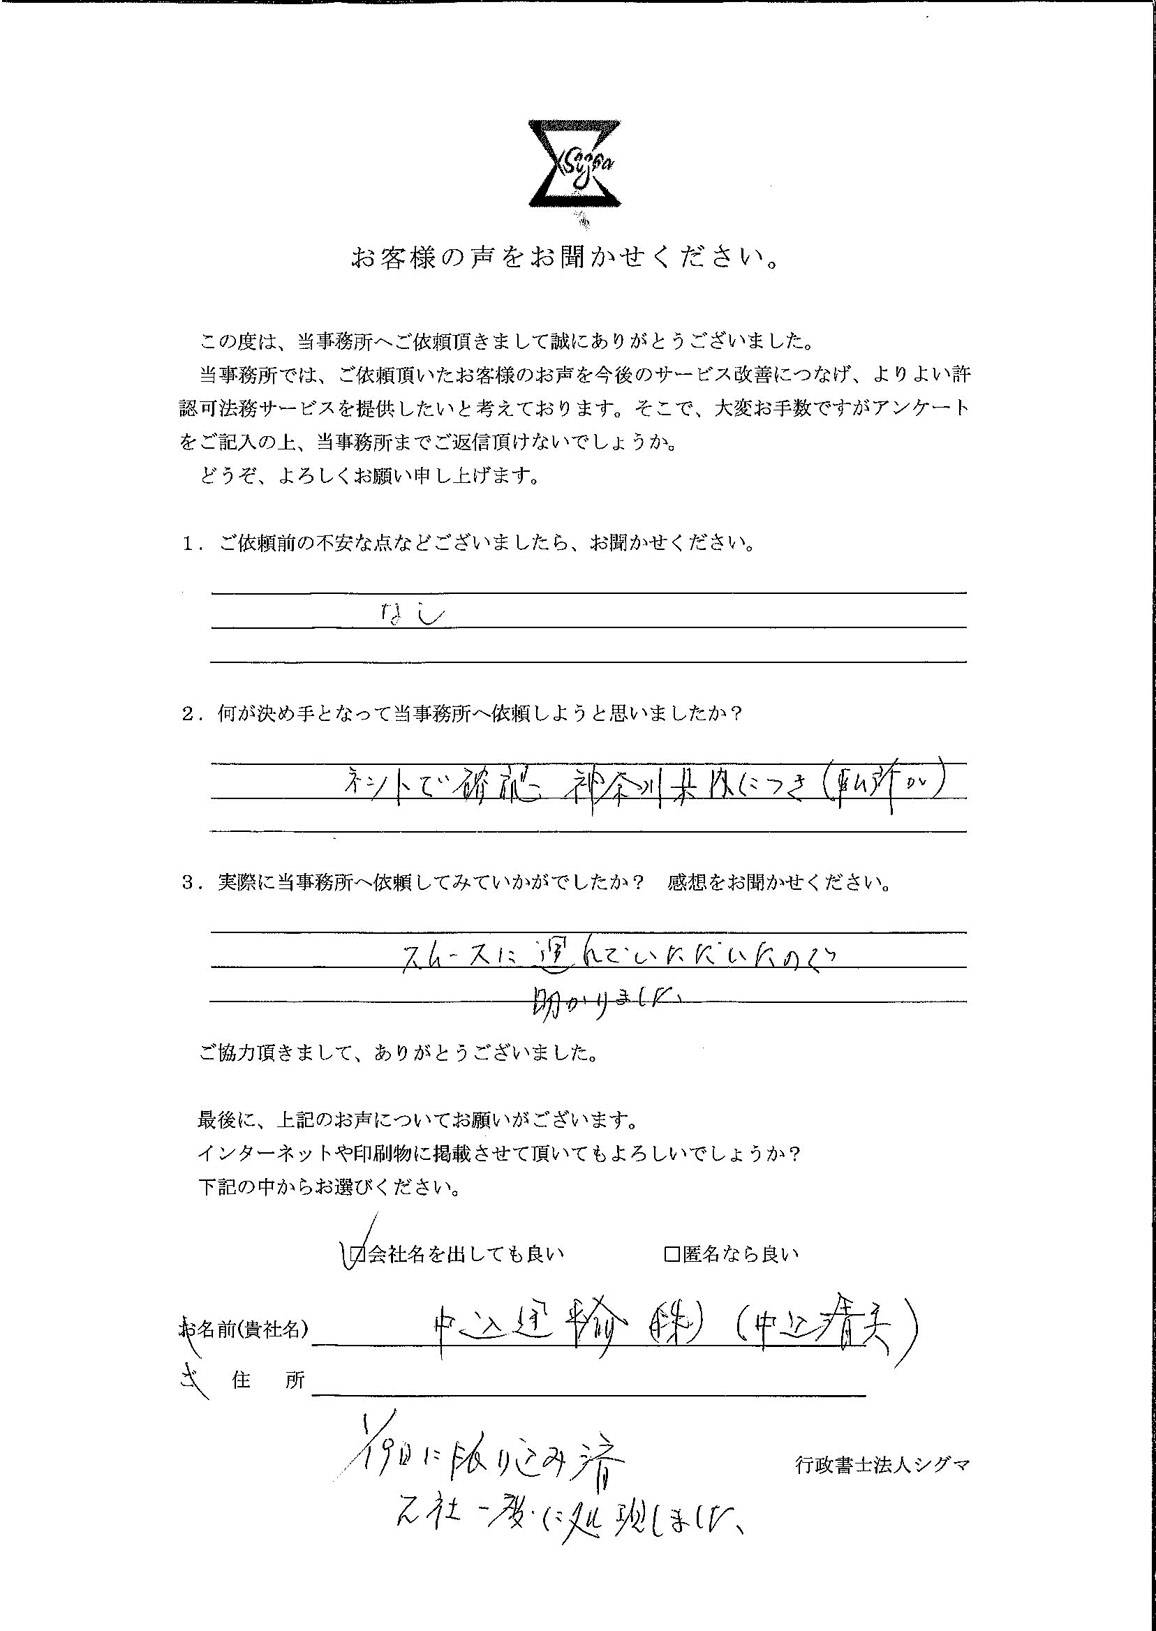 Sigma
お客様の声をお聞かせください。
この度は、当事務所へご依頼頂きまして誠にありがとうございました。
当事務所では、ご依頼頂いたお客様のお声を今後のサービス改善につなげ、よりよい許
認可法務サービスを提供したいと考えております。そこで、大変お手数ですがアンケート
をご記入の上、当事務所までご返信頂けないでしょうか。
どうぞ、よろしくお願い申し上げます。
1．ご依頼前の不安な点などございましたら、お聞かせください。
なし
2．何が決め手となって当事務所へ依頼しようと思いましたか？
ネットで確認 神奈川県内につき
3．実際に当事務所へ依頼してみていかがでしたか？　感想をお聞かせください。
スムースに運んでいただいたので
助かりました、
ご協力頂きまして、ありがとうございました。
最後に、上記のお声についてお願いがございます。
インターネットや印刷物に掲載させて頂いてもよろしいでしょうか？
下記の中からお選びください。
☑会社名を出しても良い　□匿名なら良い
お名前(貴社名) 中込運輸(株)(中込清美)
ご　住　所
1/19日に振り込み済
行政書士法人シグマ
2社一度に処理しました、